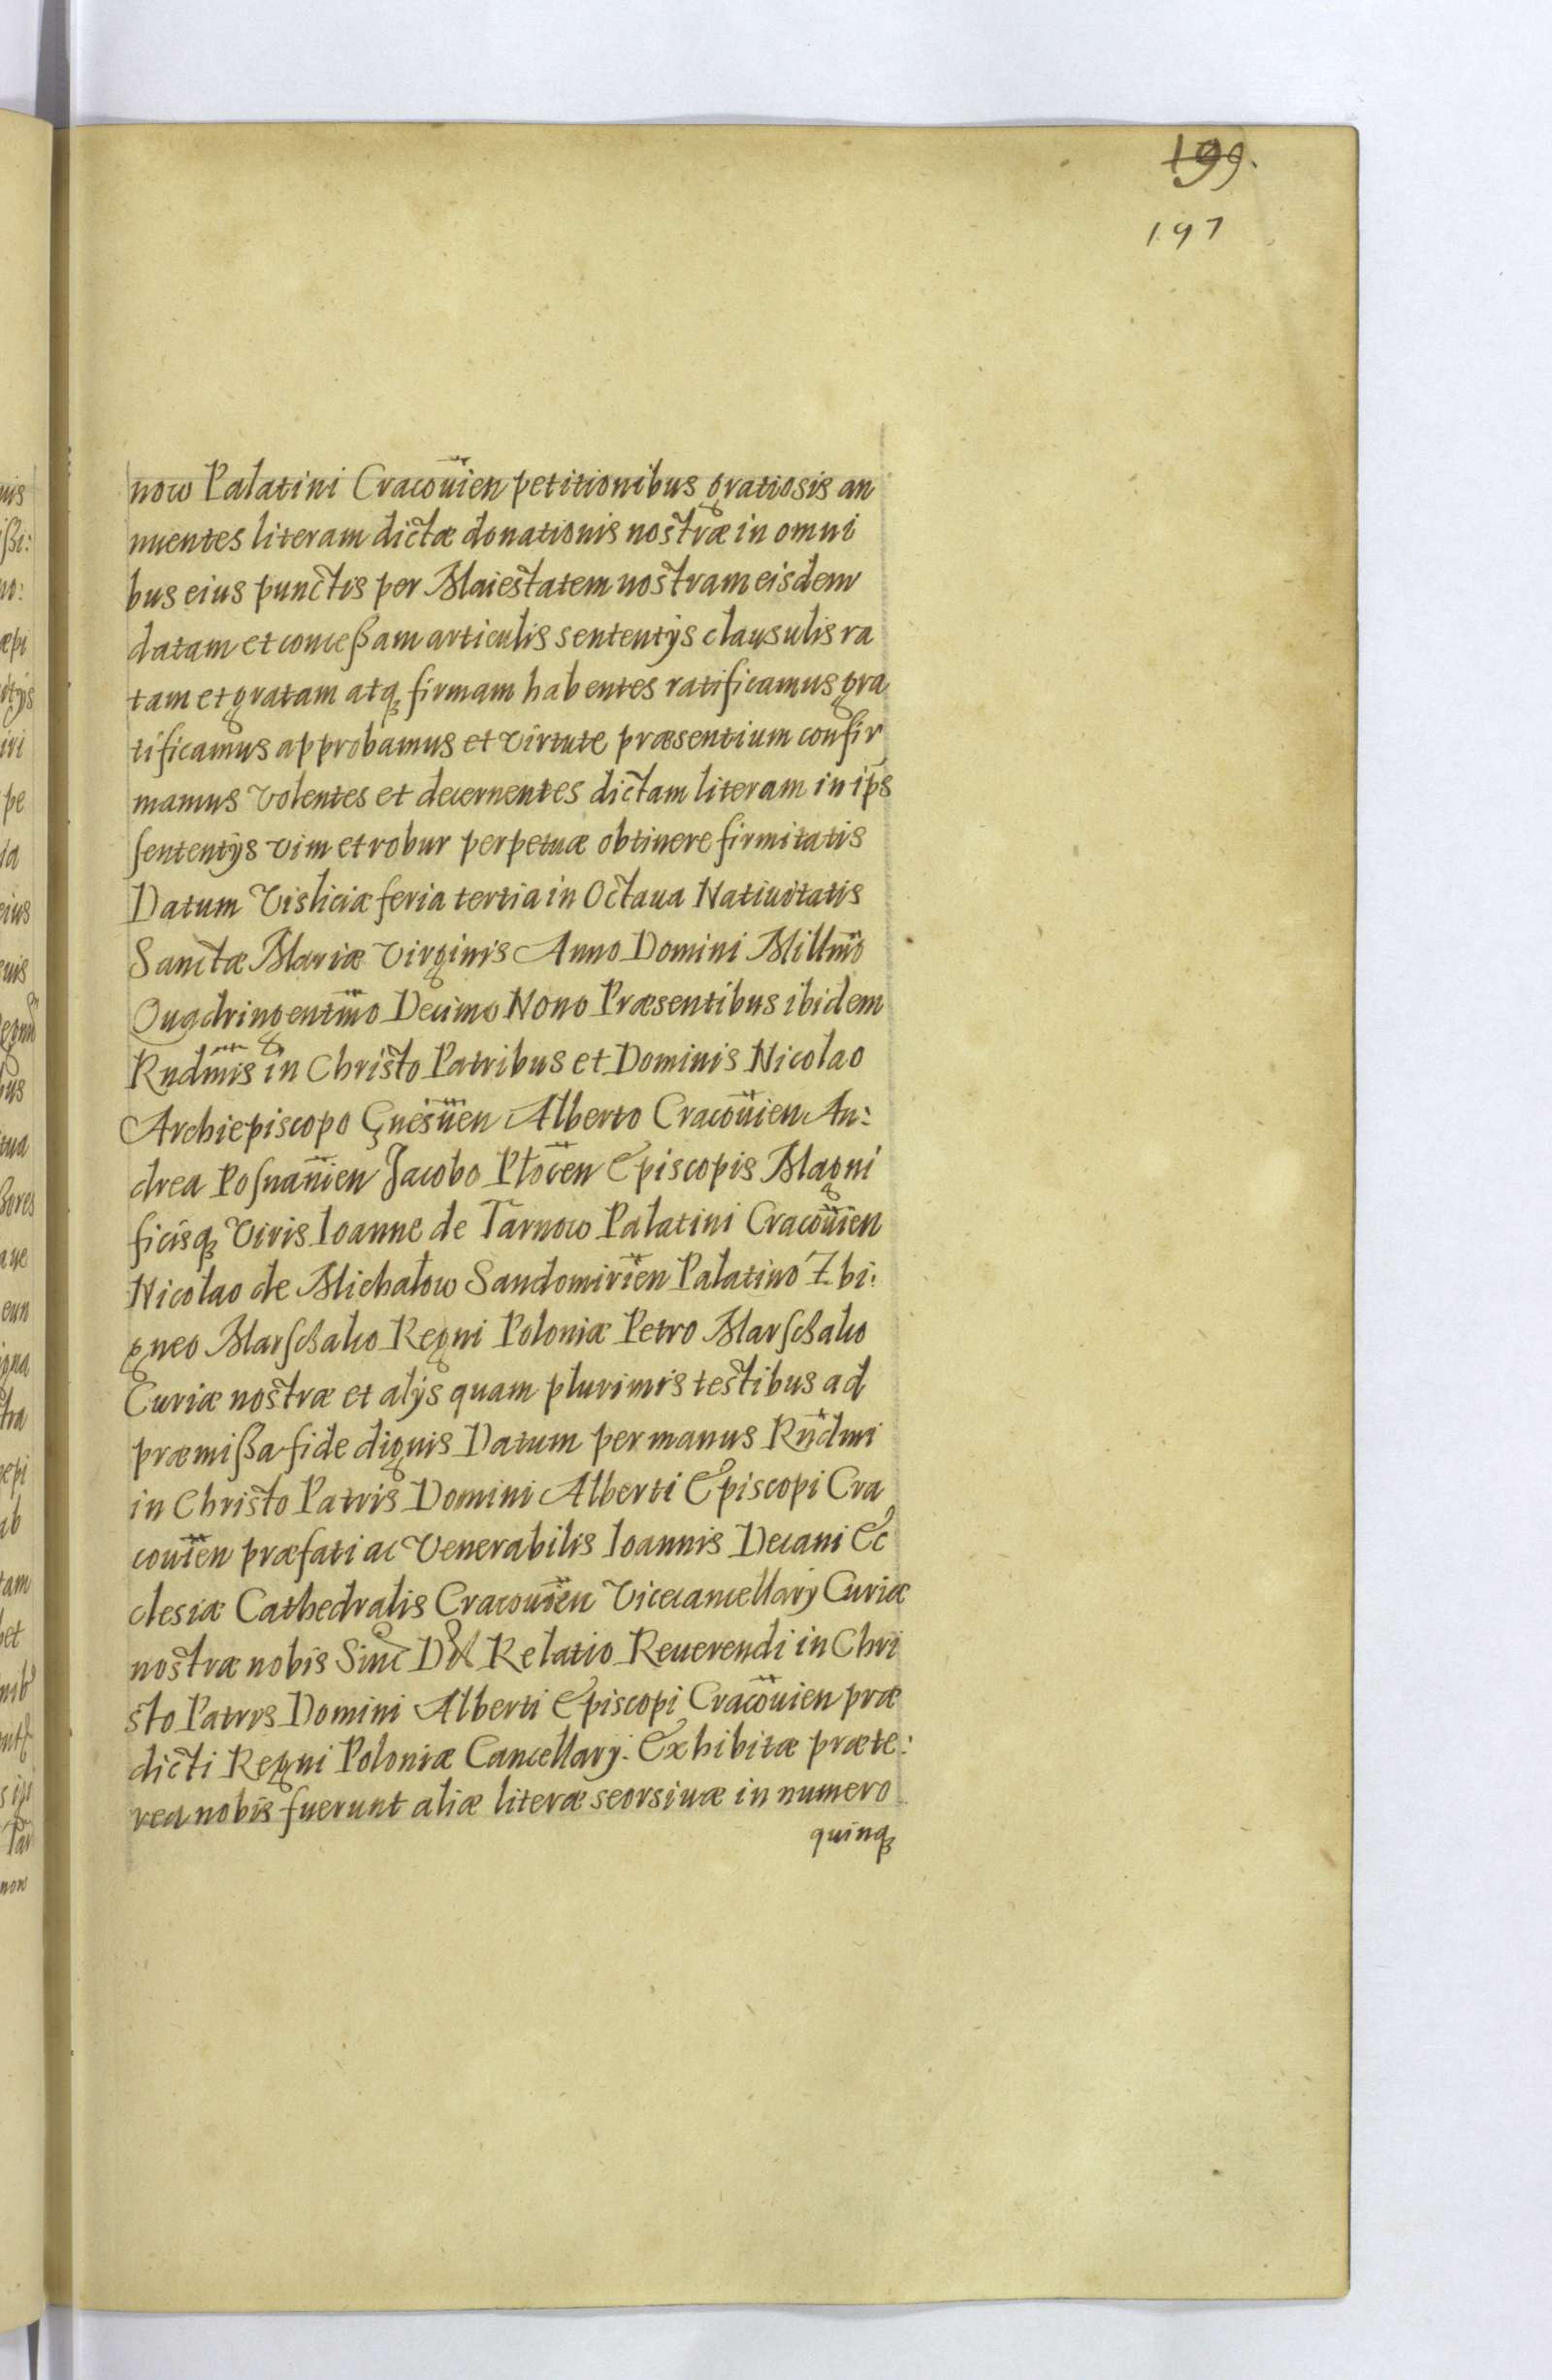 199.
197
now Palatini Cracouien petitionibus gratiosis an
nuentes literam dictæ donationis nostræ in omni
bus eius punctis per Maiestatem nostram eisdem
datam et conceßam articulis sententijs clausulis ra
tam et gratam atq firmam habentes ratificamus gra
tificamus approbamus et virtute præsentium confir
mamus volentes et decernentes dictam literam in ip̃s
sententijs vim et robur perpetuæ obtinere firmitatis
Datum Visliciæ feria tertia in Octaua Natiuitatis
Sanctæ Mariæ Virginis Anno Domini Millm̃o
Quadringentm̃o Decimo Nono Præsentibus ibidem
Rndm̃is in Christo Patribus et Dominis Nicolao
Archiepiscopo Gnesnen̄ Alberto Cracouien̄ An:
drea Posnanien̄ Jacobo Plocen̄ Episcopis Magni
ficisq Viris Ioanne de Tarnow Palatini Cracouien̄
Nicolao de Michalow Sandomirien̄ Palatino Zbi:
gneo Marschalco Regni Poloniæ Petro Marschalco
Curiæ nostræ et alijs quam plurimis testibus ad
præmißa fide dignis Datum per manus Rñdmi
in Christo Patris Domini Alberti Episcopi Cra
couien̄ præfati ac Venerabilis Ioannis Decani Ec
clesiæ Cathedralis Cracouien̄ Vicecancellarij Curiæ
nostræ nobis Sinc Relatio Reuerendi in Chri
sto Patris Domini Alberti Episcopi Cracouien̄ præ
dicti Regni Poloniæ Cancellarij. Exhibitæ præte:
rea nobis fuerunt aliæ literæ seorsiuæ in numero
quinq